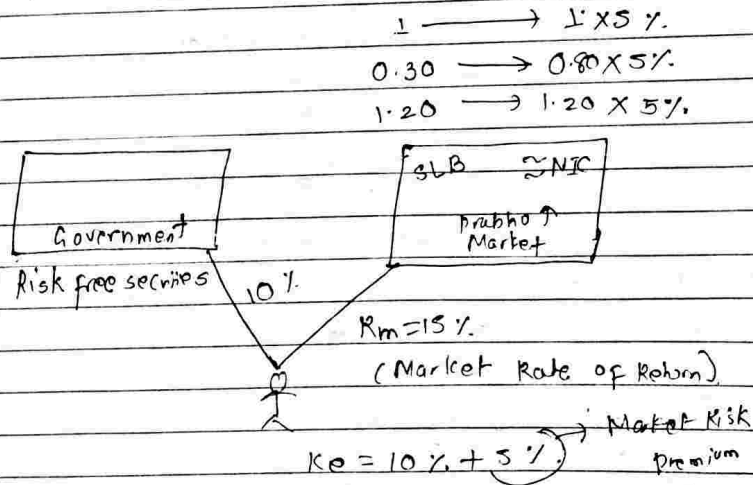 1 → 1 × 5 %.
0.30 → 0.80 × 5%.
1.20 → 1.20 × 5%.
SLB ≈ NIC
Prabho ↑
Market
Government
Risk free secriies
10 %
Rm = 15 %.
(Market Rate of Return)
Ke = 10 % + 5 % → Market Risk
premium